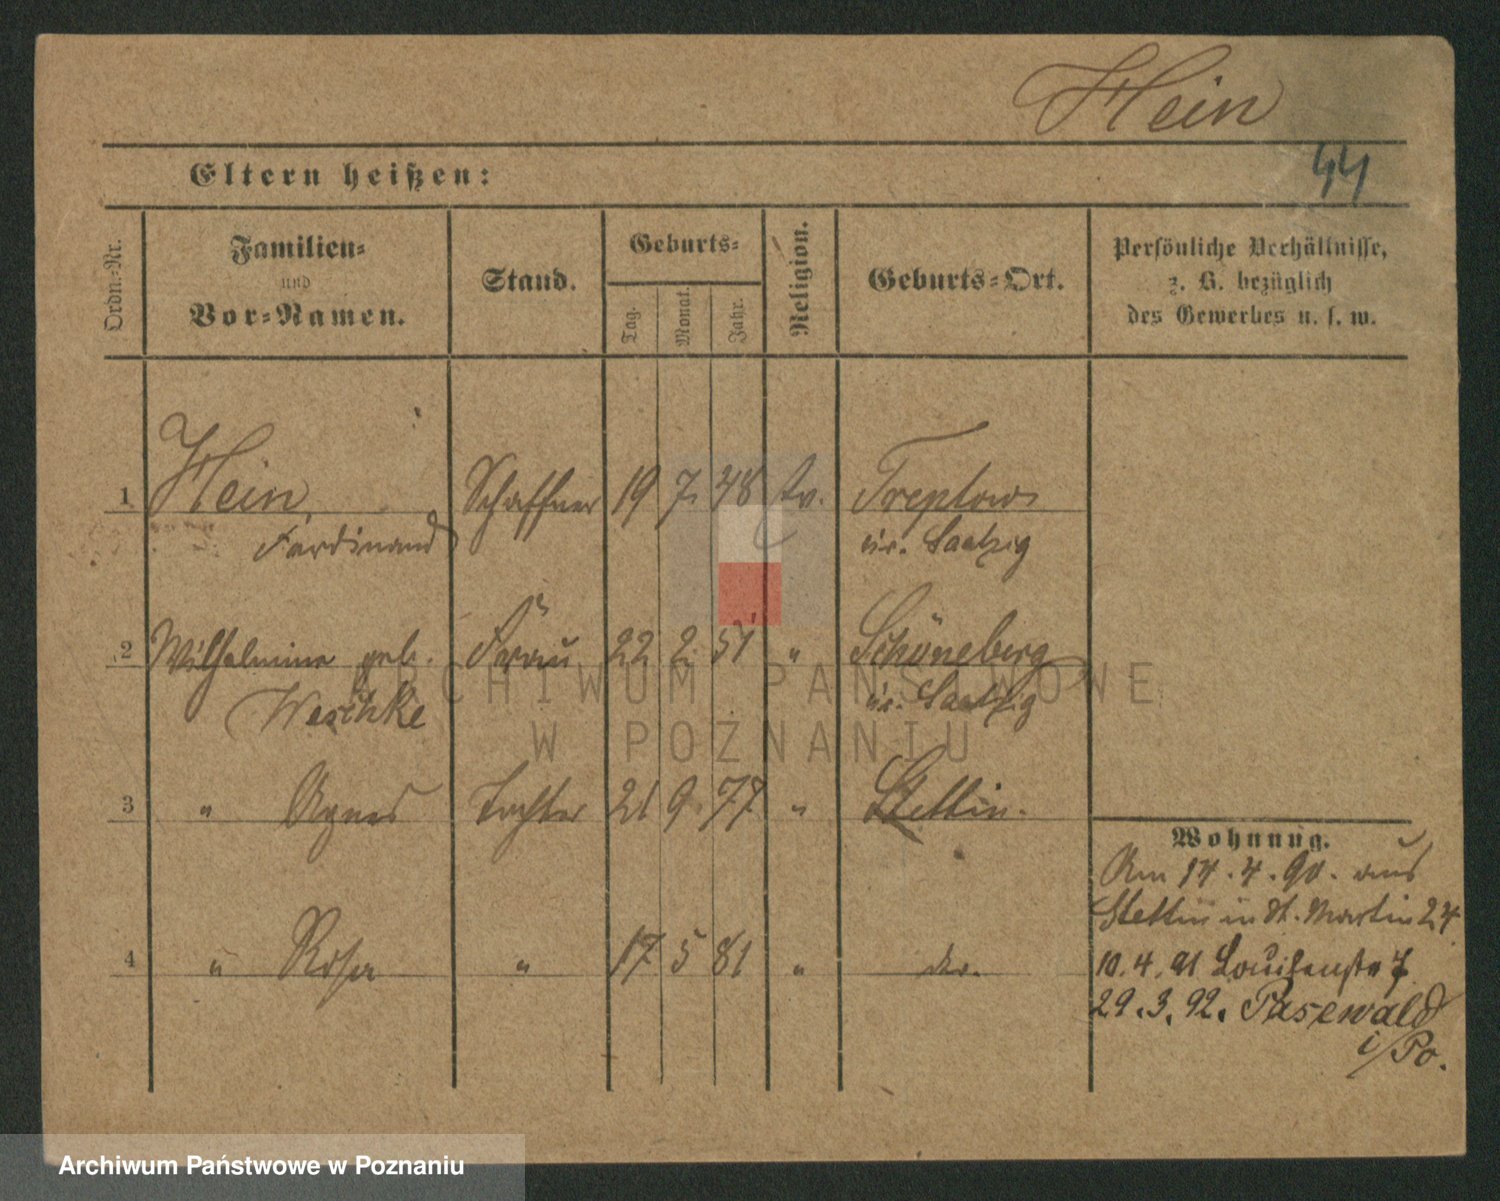 Hein
44
Eltern heißen:
Ordn.-Nr.
Familien-
und
Vor-Namen.
Stand.
Geburts-
Tag.
Monat.
Jahr.
Religion.
Geburts-Ort.
Persönliche Verhältnisse,
z. B. bezüglich
des Gewerbes u. s. w.
1 Hein, Schaffner 19 7. 48 Ev. Treptow
Ferdinand Kr. Saatzig
2 Wilhelmine geb. Frau 22 2. 51 " Schöneberg
Weschke Kr. Saatzig
3 " Agnes Tochter 21 9. 77. " Stettin.
4 " Rosa " 17 5 81 " do.
Wohnung.
Am 14.4.90. aus
Stettin in St. Martin 24
10.4.91 Louisenstr 7
29.3.92. Pasewald
i/Po.
ARCHIWUM PAŃSTWOWE
W POZNANIU
Archiwum Państwowe w Poznaniu